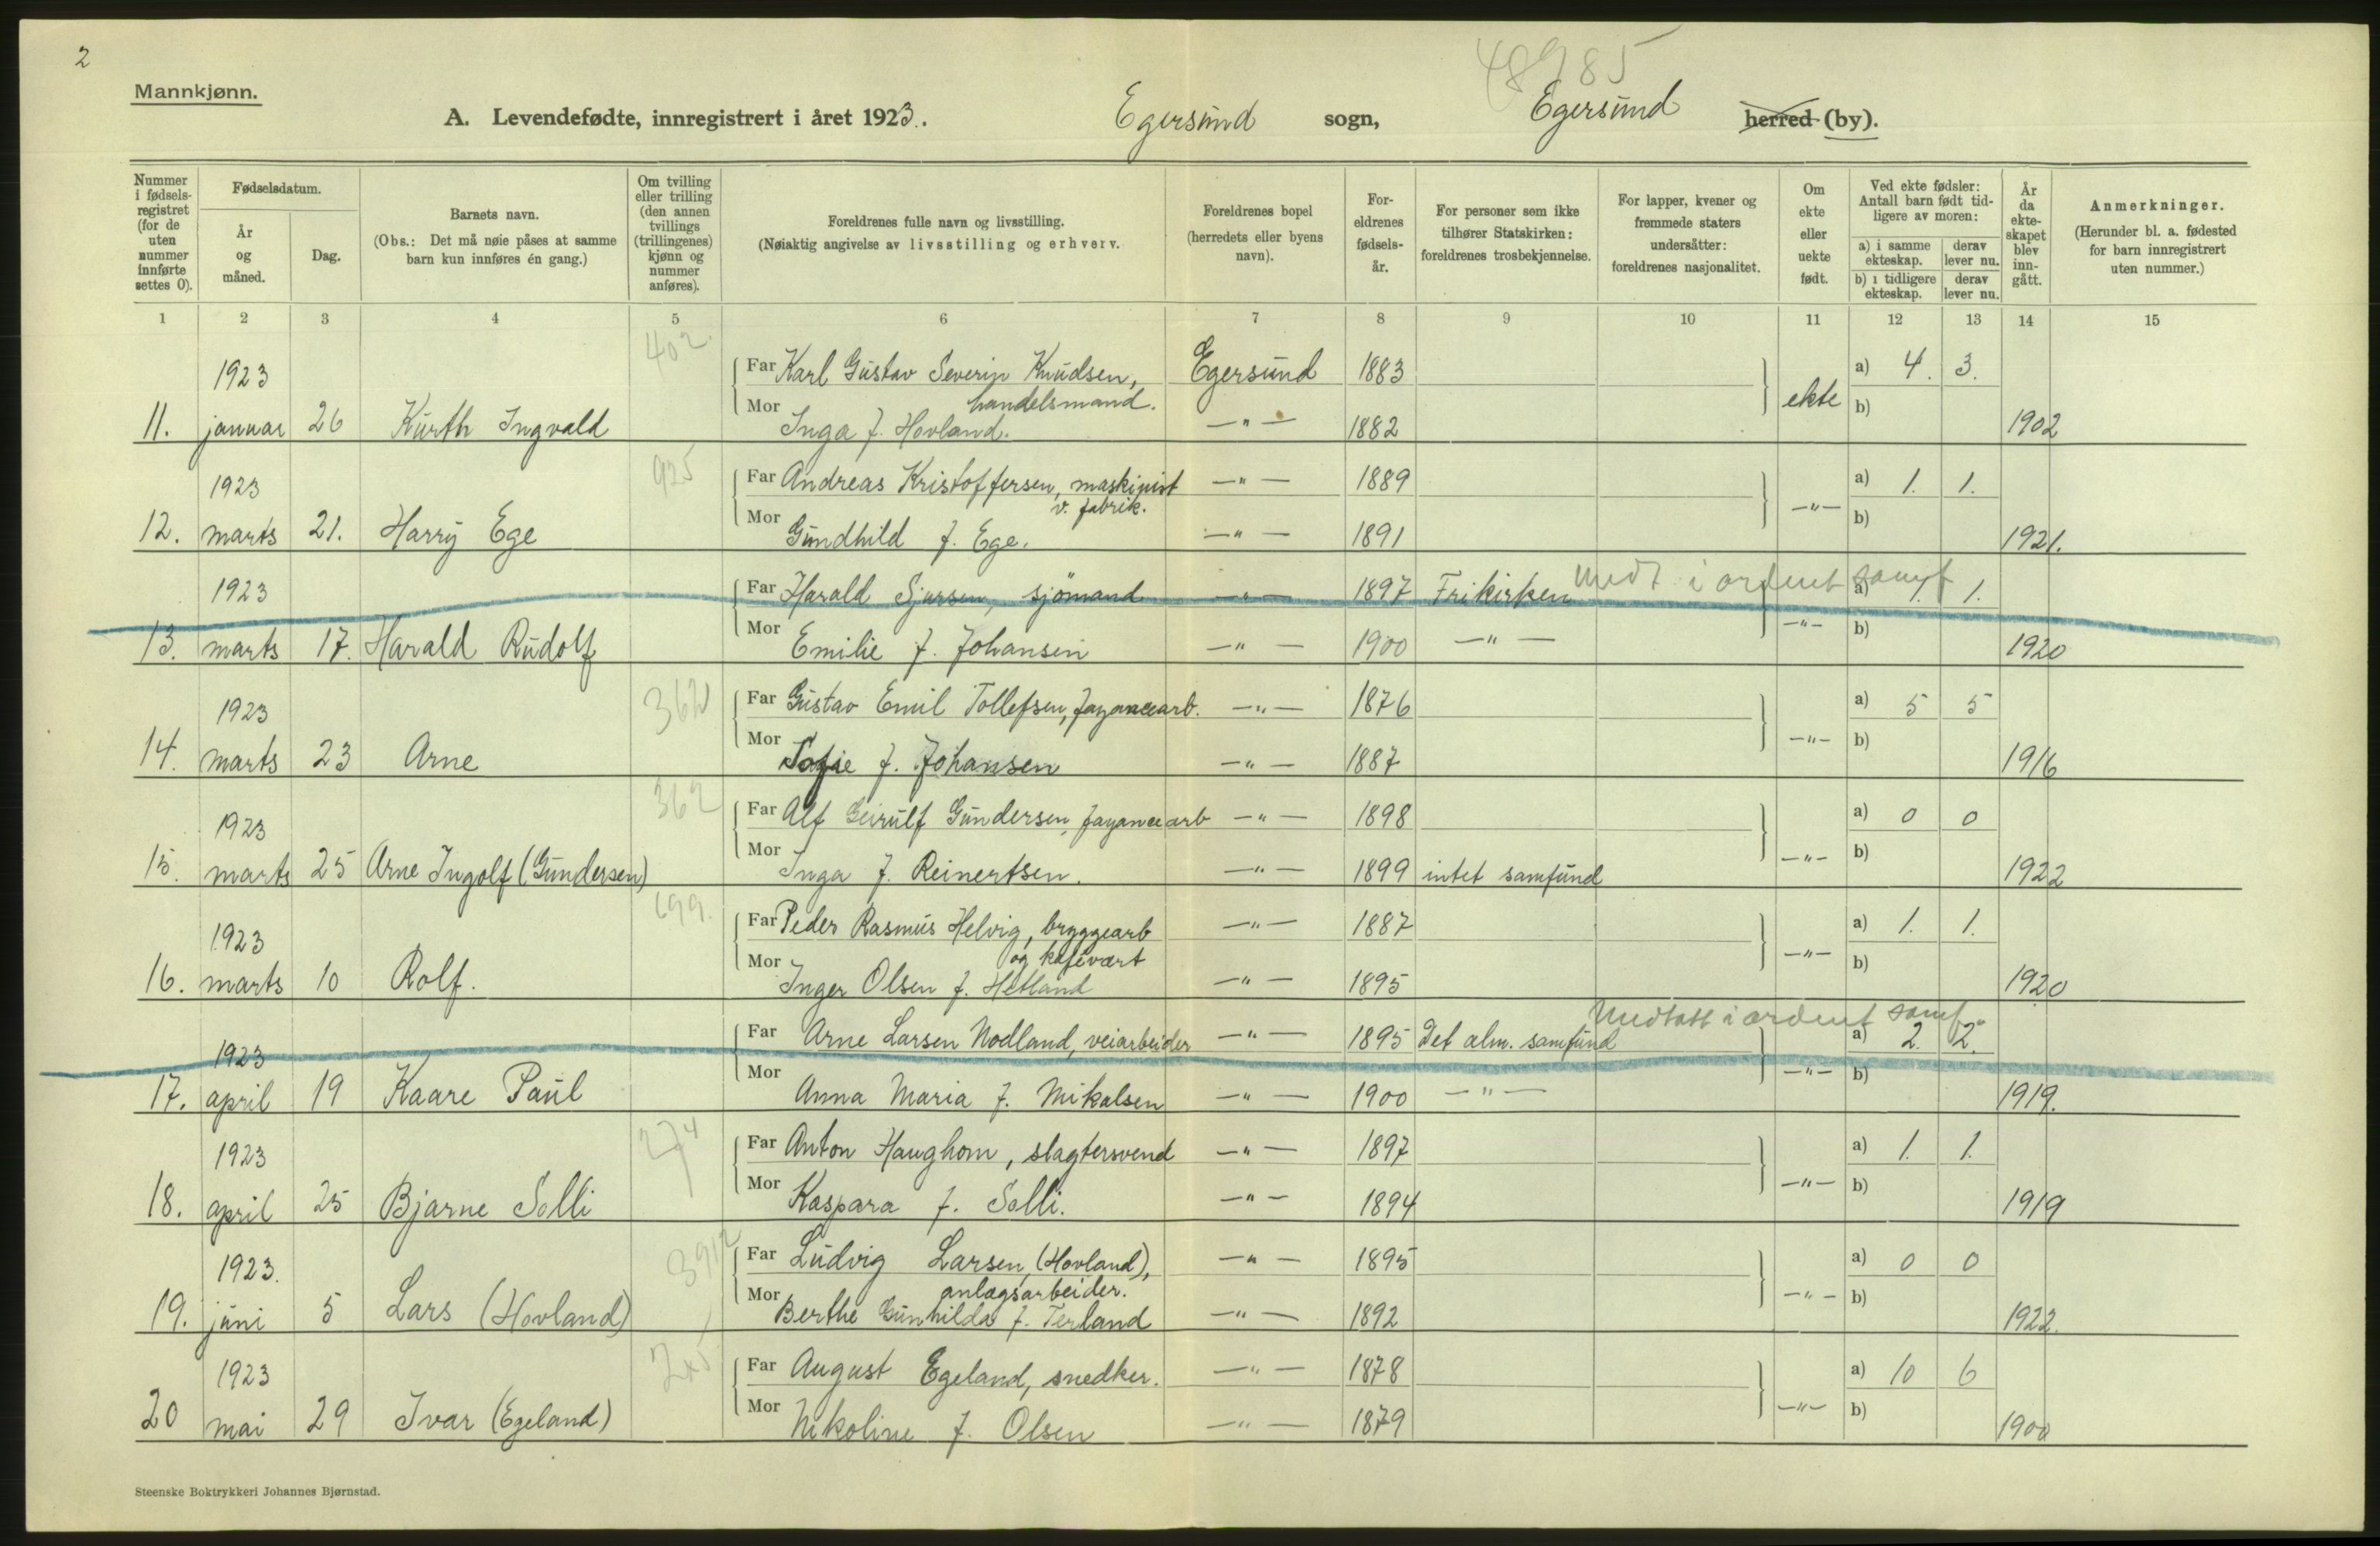 2
48985
Mannkjønn.
A. Levendefødte, innregistrert i året 1923. Egersund sogn, Egersund herred (by).
Nummer i fødsels-registret (for de uten nummer innførte settes 0).
Fødselsdatum.
År og måned.
Dag.
Barnets navn.
(Obs.: Det må nøie påses at samme barn kun innføres én gang.)
Om tvilling eller trilling (den annen tvillings (trillingenes) kjønn og nummer anføres).
Foreldrenes fulle navn og livsstilling.
(Nøiaktig angivelse av livsstilling og erhverv.
Foreldrenes bopel (herredets eller byens navn).
For-eldrenes fødsels-år.
For personer som ikke tilhører Statskirken: foreldrenes trosbekjennelse.
For lapper, kvener og fremmede staters undersåtter: foreldrenes nasjonalitet.
Om ekte eller uekte født.
Ved ekte fødsler: Antall barn født tid-ligere av moren:
a) i samme ekteskap. derav lever nu.
b) i tidligere ekteskap. derav lever nu.
År da ekte-skapet blev inn-gått.
Anmerkninger.
(Herunder bl. a. fødested for barn innregistrert uten nummer.)
1 2 3 4 5 6 7 8 9 10 11 12 13 14 15
402.
1923 Far Karl Gustav Severin Knudsen, Egersund 1883 a) 4. 3.
handelsmand. ekte b)
11. januar 26 Kurth Ingvald Mor Inga f. Hovland. —"— 1882 1902
925
1923 Far Andreas Kristoffersen, maskinist —"— 1889 a) 1. 1.
v. fabrik. —"— b)
12. marts 21. Harry Ege Mor Gundhild f. Ege. —"— 1891 1921.
1923 Far Harald Sjursen, sjömand —"— 1897 Frikirken a) 1. 1.
—"— b)
13. marts 17. Harald Rudolf Mor Emilie f. Johansen —"— 1900 —"— 1920
1923 Far Gustav Emil Tollefsen, fayancearb. —"— 1876 a) 5 5
—"— b)
14. marts 23 Arne Mor Sofie f. Johansen —"— 1887 1916
362
1923 Far Alf Geirulf Gundersen, fayancearb —"— 1898 a) 0 0
—"— b)
15. marts 25 Arne Ingolf (Gundersen) Mor Inga f. Reinertsen. —"— 1899 intet samfund 1922
699.
1923 Far Peder Rasmus Helvig, bryggearb —"— 1887 a) 1. 1.
og kafévært —"— b)
16. marts 10 Rolf. Mor Inger Olsen f. Hetland —"— 1895 1920
Medtatt i ordent samf.
1923 Far Arne Larsen Nodland, veiarbeider —"— 1895 Det alm. samfund a) 2. 2.
—"— b)
17. april 19 Kaare Paul Mor Anna Maria f. Mikalsen —"— 1900 —"— 1919.
274
1923 Far Anton Haughom, slagtersvend —"— 1897 a) 1. 1.
—"— b)
18. april 25 Bjarne Solli Mor Kaspara f. Solli. —"— 1894 1919
1923. Far Ludvig Larsen, (Hovland), —"— 1895 a) 0 0
anlægsarbeider. —"— b)
19. juni 5 Lars (Hovland) Mor Berthe Gunhilda f. Terland —"— 1892 1922.
1923 Far August Egeland, snedker. —"— 1878 a) 10 6
—"— b)
20 mai 29 Ivar (Egeland) Mor Nikoline f. Olsen —"— 1879 1900
Steenske Boktrykkeri Johannes Bjørnstad.